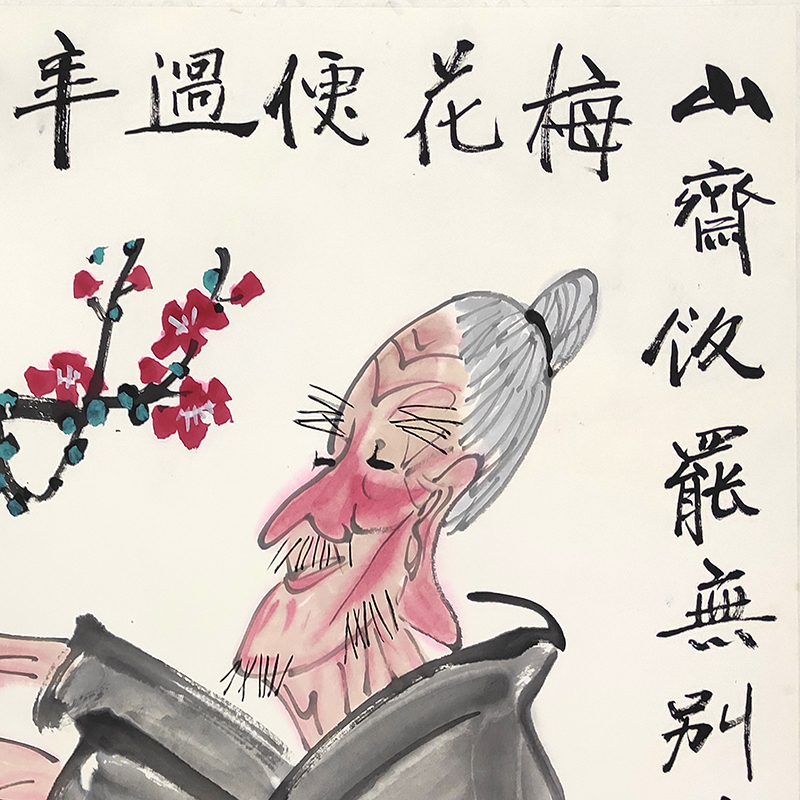 山齋飯罷無别
梅花便過年